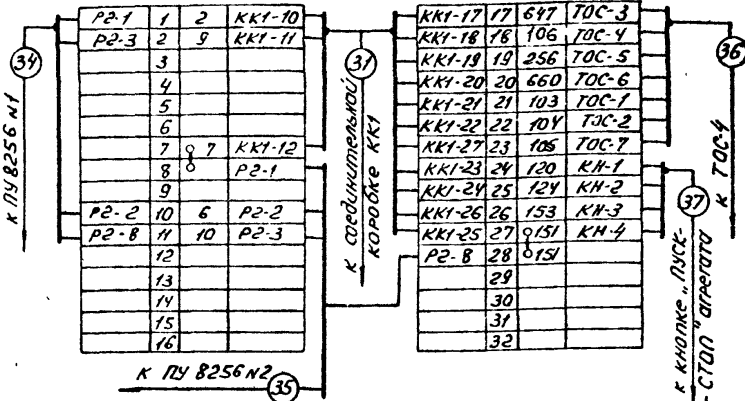 Р2-1 1 2 КК1-10
Р2-3 2 9 КК1-11
3
4
5
6
7 7 КК1-12
8 Р2-1
9
Р2-2 10 6 Р2-2
Р2-8 11 10 Р2-3
12
13
14
15
16
34
к ПУ 8256 №1
31
к соединительной
коробке КК1
к ПУ 8256 №2
35
КК1-17 17 647 ТОС-3
КК1-18 18 106 ТОС-4
КК1-19 19 256 ТОС-5
КК1-20 20 660 ТОС-6
КК1-21 21 103 ТОС-1
КК1-22 22 104 ТОС-2
КК1-27 23 105 ТОС-7
КК1-23 24 120 КН-1
КК1-24 25 124 КН-2
КК1-26 26 153 КН-3
КК1-25 27 151 КН-4
Р2-8 28 151
29
30
31
32
36
к ТОС-4
37
к кнопке „Пуск-
- стоп" агрегата